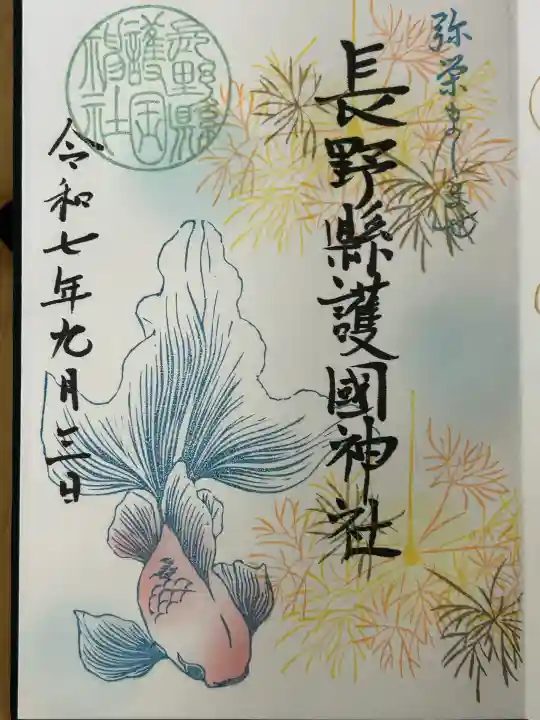 弥栄ましませ
長野縣護國神社
長野縣
護國
神社
令和七年九月三日